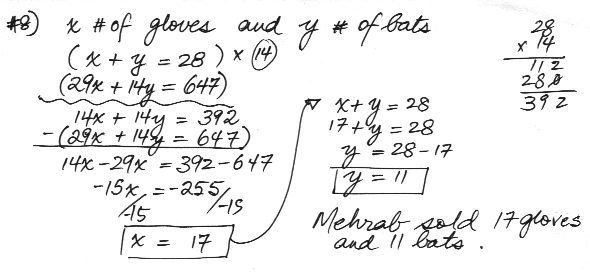 #8) x # of gloves and y # of bats
(x + y = 28) x 14
(29x + 14y = 647)
14x + 14y = 392
-(29x + 14y = 647)
14x - 29x = 392 - 647
-15x = -255
/-15 /-15
x = 17
x + y = 28
17 + y = 28
y = 28 - 17
y = 11
Mehrab sold 17 gloves
and 11 bats.
28
x 14
112
280
392